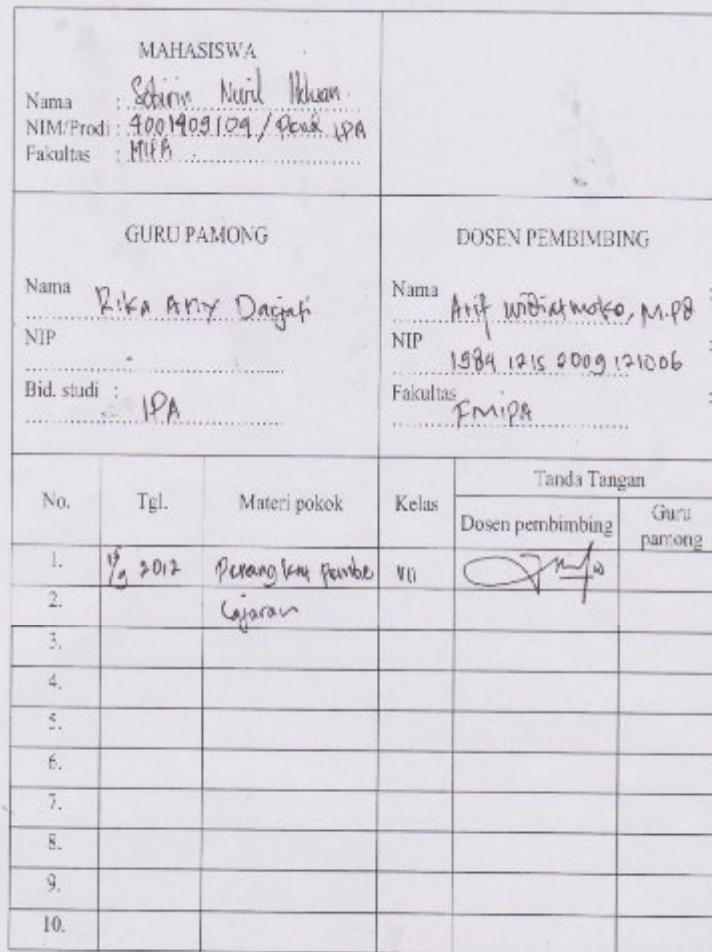 MAHASISWA
Nama : Nuril
NIM/Prodi : 4001409109 / Pend. IPA
Fakultas : MIPA
GURU PAMONG
Nama Rika Any
NIP -
Bid. studi : IPA
DOSEN PEMBIMBING
Nama : Arif Widiatmoko, M.Pd
NIP : 1984 1215 2009 121006
Fakultas : FMIPA
No. Tgl. Materi pokok Kelas Tanda Tangan
Dosen pembimbing Guru pamong
1. 2012 Perangkat Pembe VII
2. lajaran
3.
4.
5.
6.
7.
8.
9.
10.